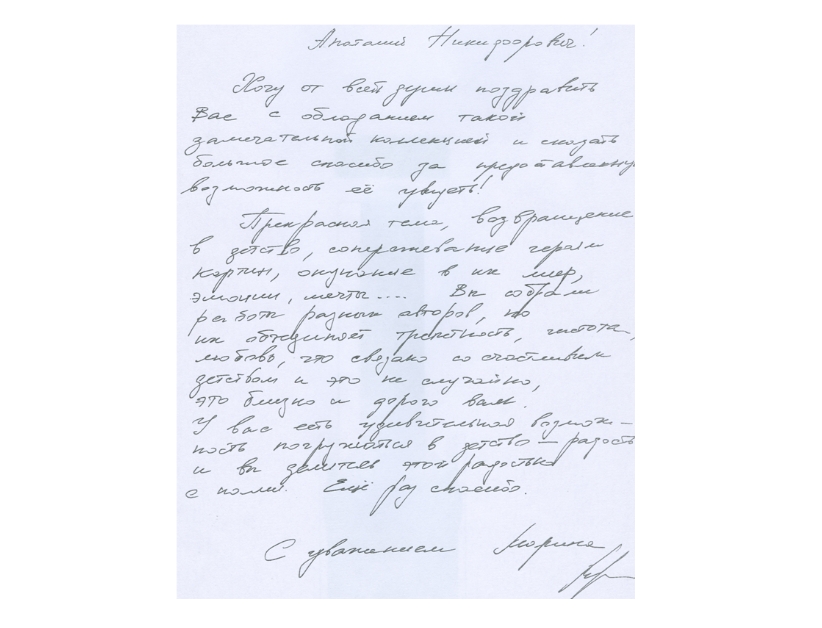 Анатолий Никифорович!
Хочу от всей души поздравить
Вас с обладанием такой
замечательной коллекцией и сказать
большое спасибо за предоставленную
возможность её увидеть!
Прекрасная тема, возвращение
в детство, сопереживание героям
картин, окунание в их мир,
эмоции, мечты.... Вы собрали
работы разных авторов, но
их объединяет трепетность, чистота,
любовь, что связано со счастливым
детством и это не случайно,
это близко и дорого вам.
У вас есть удивительная возмож-
ность погружаться в детство – радость
и вы делитесь этой радостью
с нами. Ещё раз спасибо.
С уважением Марина